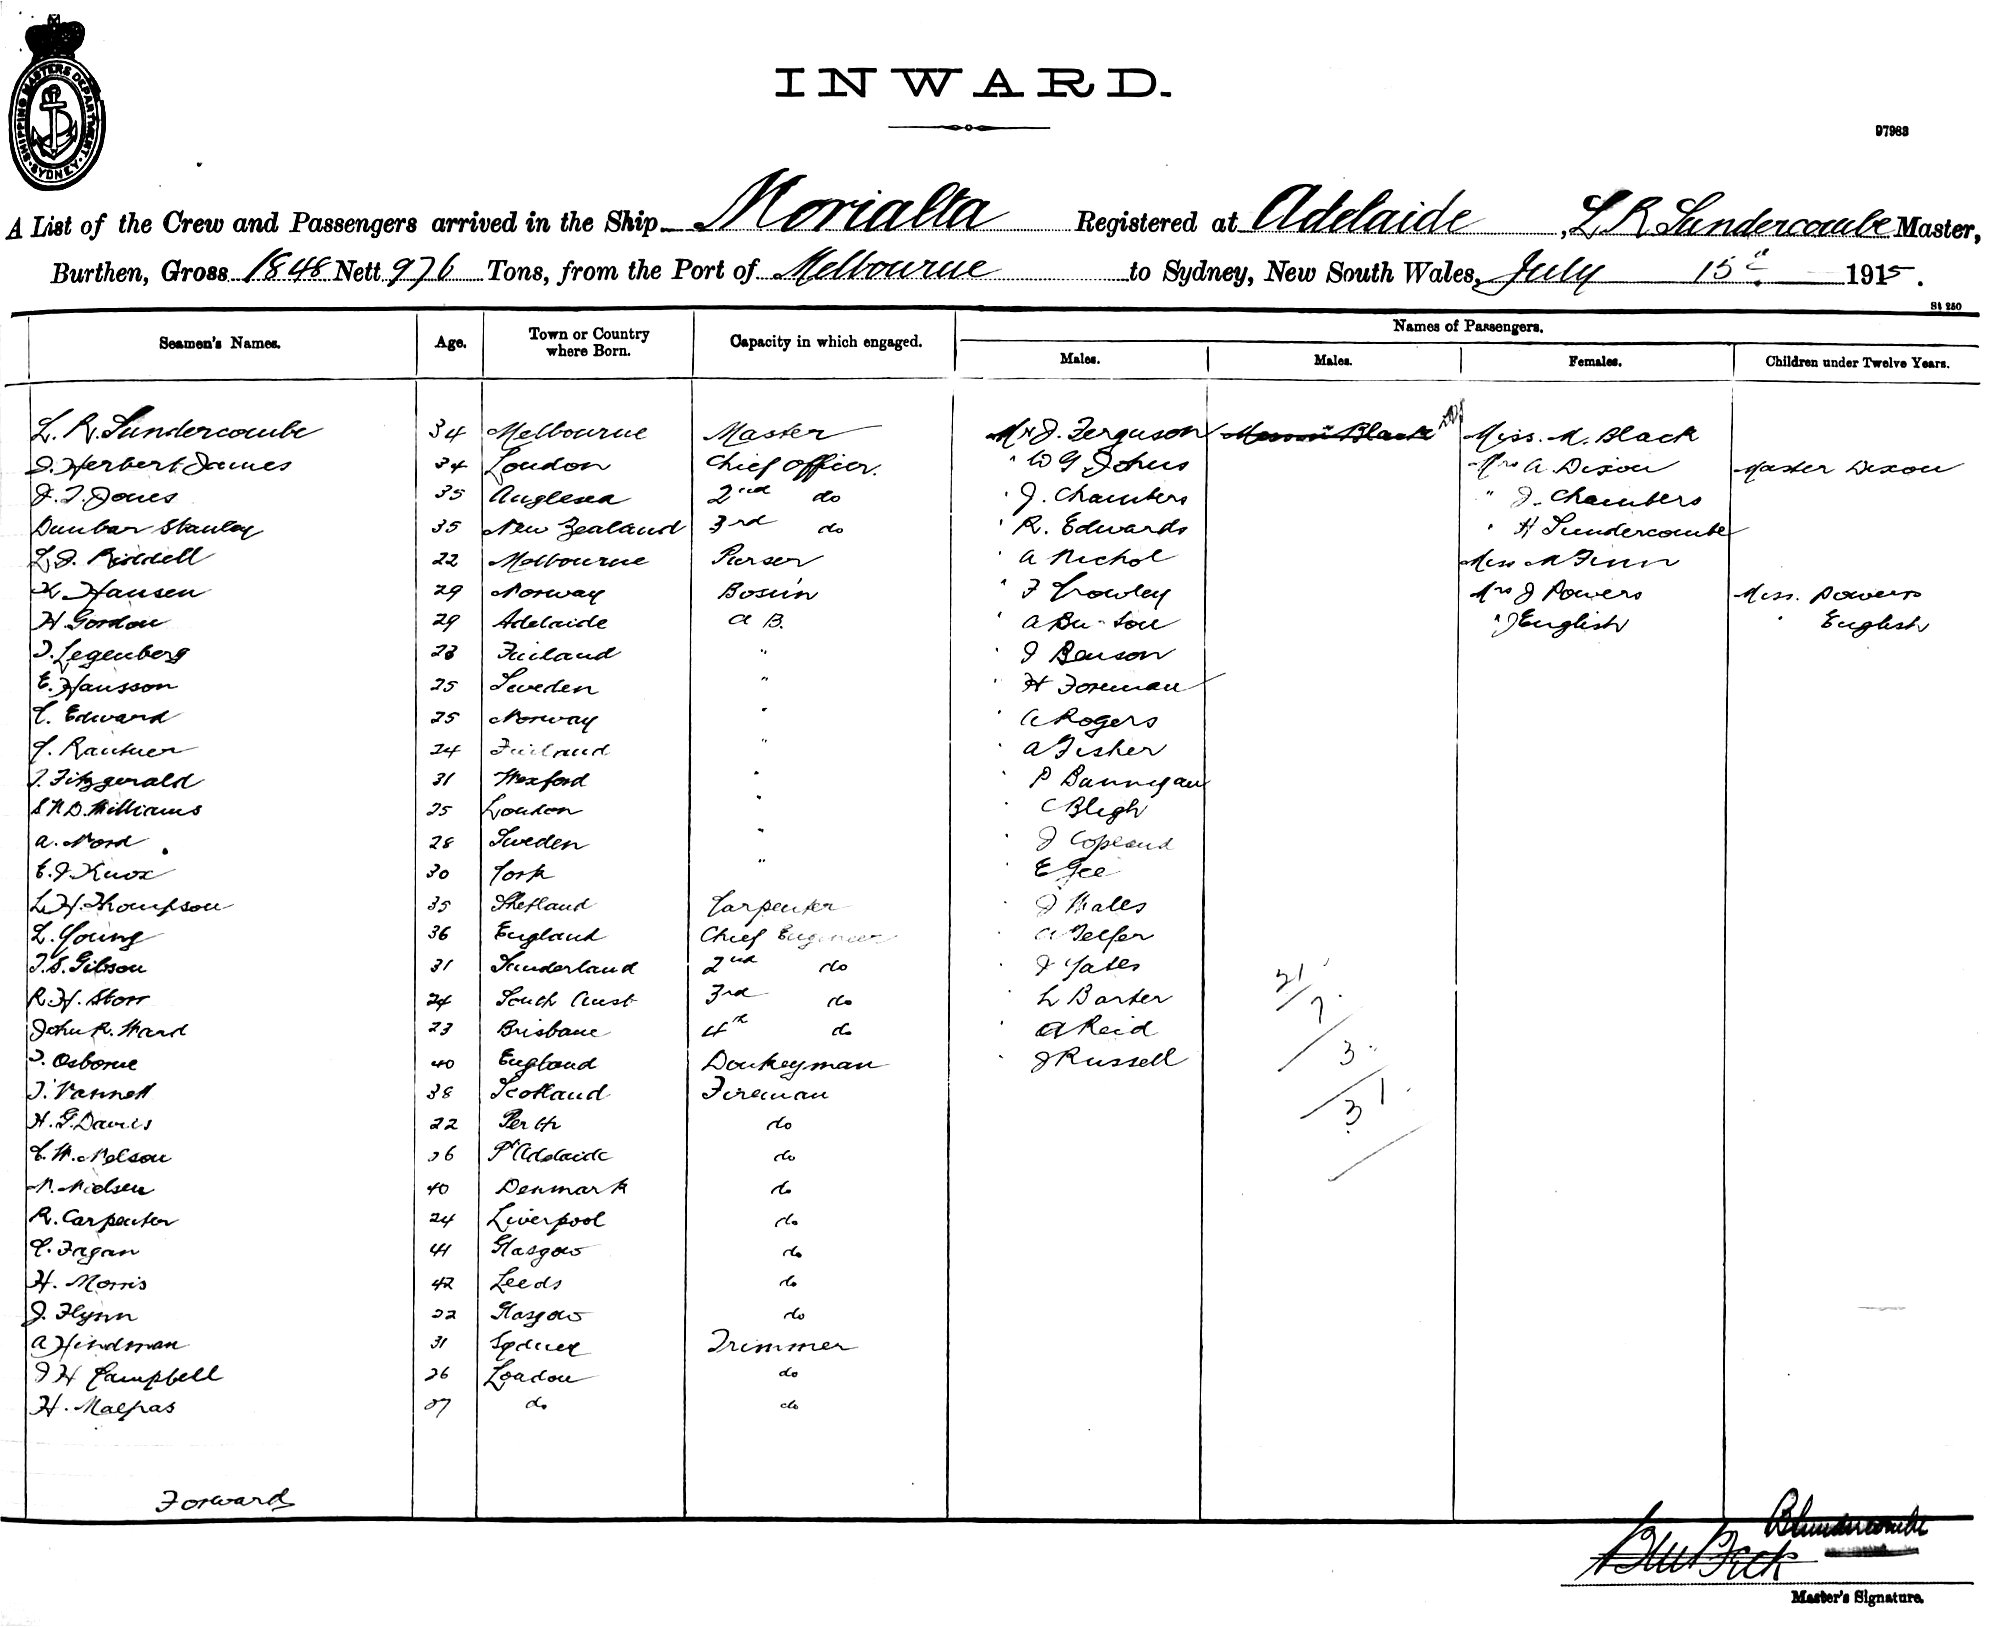 SHIPPING MASTERS DEPARTMENT. SYDNEY.
INWARD.
97983
A List of the Crew and Passengers arrived in the Ship Morialta Registered at Adelaide, L R Sundercombe Master,
Burthen, Gross 1848 Nett 976 Tons, from the Port of Melbourne to Sydney, New South Wales, July 15th 1915.
St 250
Seamen's Names. Age. Town or Country where Born. Capacity in which engaged. Names of Passengers.
Males. Males. Females. Children under Twelve Years.
L. R. Sundercombe 34 Melbourne Master Mr J. Ferguson Black Miss. M. Black
J. Herbert James 34 London Chief Officer. " W G Johns Mrs A Dixon Master Dixon
J. T. Jones 35 Anglesea 2nd do " J. Chambers " J. Chambers
Dunbar Stanley 35 New Zealand 3rd do " R. Edwards " H Sundercombe
L. J. Riddell 22 Melbourne Purser A Nichol Miss M Finn
K. Hansen 29 Norway Bosun " F Crowley Mrs J Powers Miss. Powers
H. Gordon 29 Adelaide A B. " J English " English
J. Legenberg 23 Finland " " J Benson
E. Hansson 25 Sweden " " H Foreman
C. Edward 25 Norway " " A Rogers
Rantner 24 Finland " " A Fisher
J. Fitzgerald 31 Wexford " " P Bannigan
Williams 25 London " " C Bligh
A. Nord 28 Sweden " " J Copland
E. J. Knox 30 Cork " " E Gee
L. H. Thompson 35 Shetland Carpenter " J Wales
L. Young 36 England Chief Engineer " A Telfer
J. S. Gibson 31 Sunderland 2nd do " J Yates
R. H. Storr 24 South Aust 3rd do " L Barter
John R. Ward 23 Brisbane 4th do " A Reid
J. Osborne 40 England Donkeyman " J Russell
J. Vannett 38 Scotland Fireman
H. G. Davis 22 Perth do
C. W. Nelson 26 Pt Adelaide do
N. Nielsen 40 Denmark do
R. Carpenter 24 Liverpool do
C. Fagan 41 Glasgow do
H. Morris 42 Leeds do
J. Flynn 22 Glasgow do
A Hindman 31 Sydney Trimmer
J H Campbell 26 London do
H. Malpas 27 do do
21
7
3
31
Forward
Master's Signature.